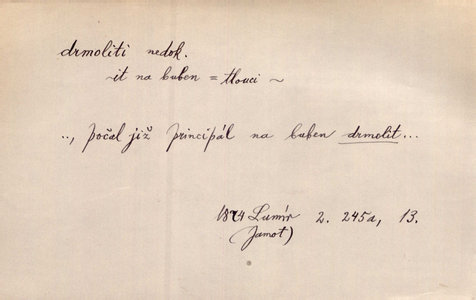 drmoliti nedok.
~it na buben = tlouci ~
.., počal již principál na buben drmolit...
1874 Lumír 2. 245a, 13.
(Jamot)